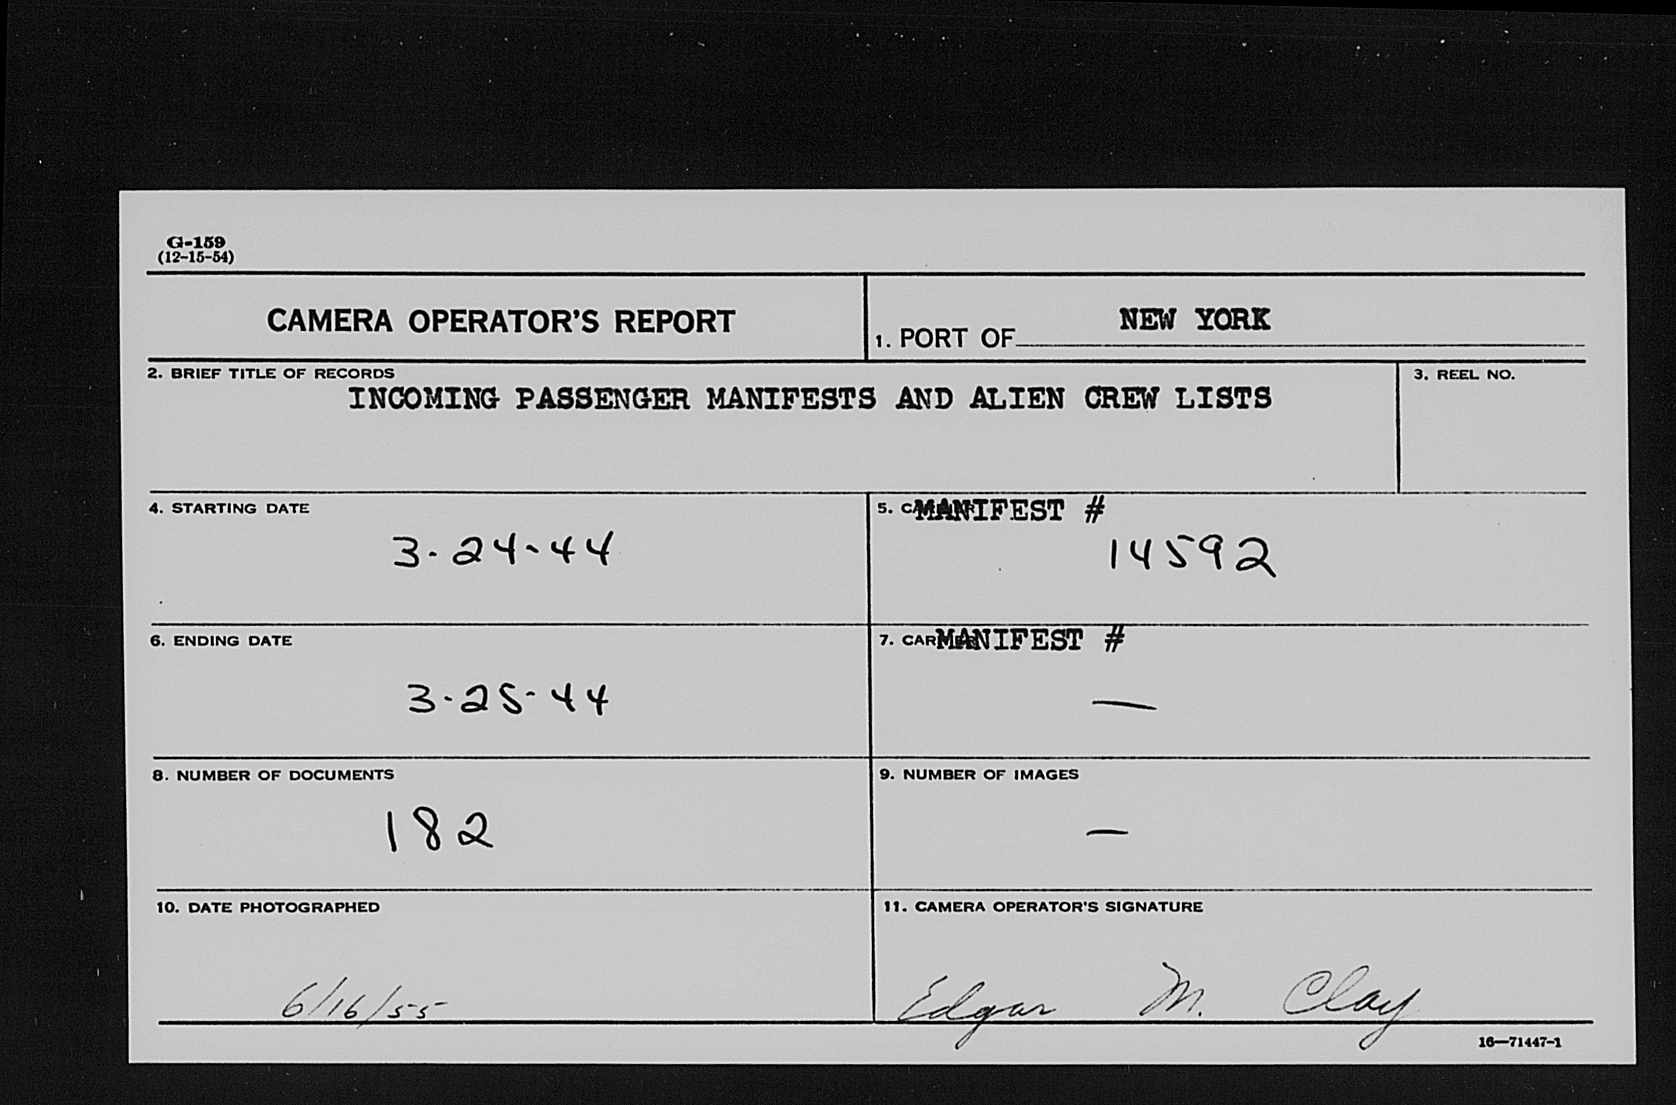 G-159
(12-15-54)
CAMERA OPERATOR'S REPORT
1. PORT OF NEW YORK
2. BRIEF TITLE OF RECORDS
INCOMING PASSENGER MANIFESTS AND ALIEN CREW LISTS
3. REEL NO.
4. STARTING DATE
3-24-44
5. CARRIER MANIFEST #
14592
6. ENDING DATE
3-25-44
7. CARRIER MANIFEST #
—
8. NUMBER OF DOCUMENTS
182
9. NUMBER OF IMAGES
—
10. DATE PHOTOGRAPHED
6/16/55
11. CAMERA OPERATOR'S SIGNATURE
Edgar M. Clay
16—71447-1